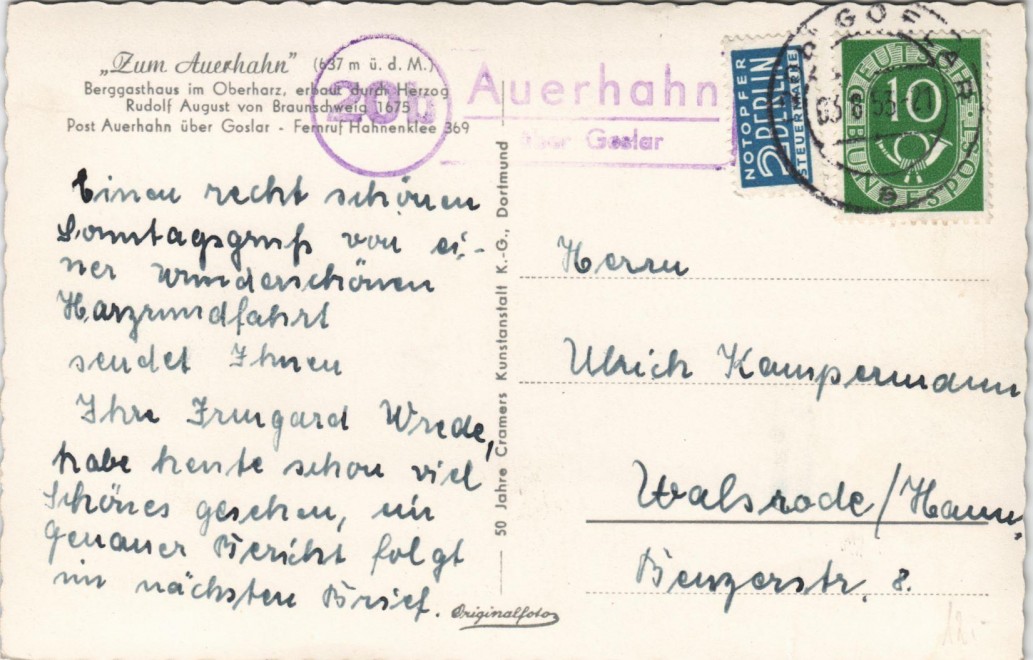 „Zum Auerhahn” (637 m ü. d. M.)
Berggasthaus im Oberharz, erbaut durch Herzog
Rudolf August von Braunschweig 1675
Post Auerhahn über Goslar - Fernruf Hahnenklee 369
20b
Auerhahn
über Goslar
NOTOPFER
2 BERLIN
STEUERMARKE
GOSLAR
03.8.53-21
b
DEUTSCHE
10
BUNDESPOST
Einen recht schönen
Sonntagsgruß von ei-
ner wunderschönen
Harzrundfahrt
sendet Ihnen
Ihre Irmgard Wrede,
habe heute schon viel
Schönes gesehen, ein
genauer Bericht folgt
im nächsten Brief.
50 Jahre Cramers Kunstanstalt K.-G., Dortmund
Originalfoto
Herrn
Ulrich Kampermann
Walsrode/Hann.
Benzerstr. 8.
12.-